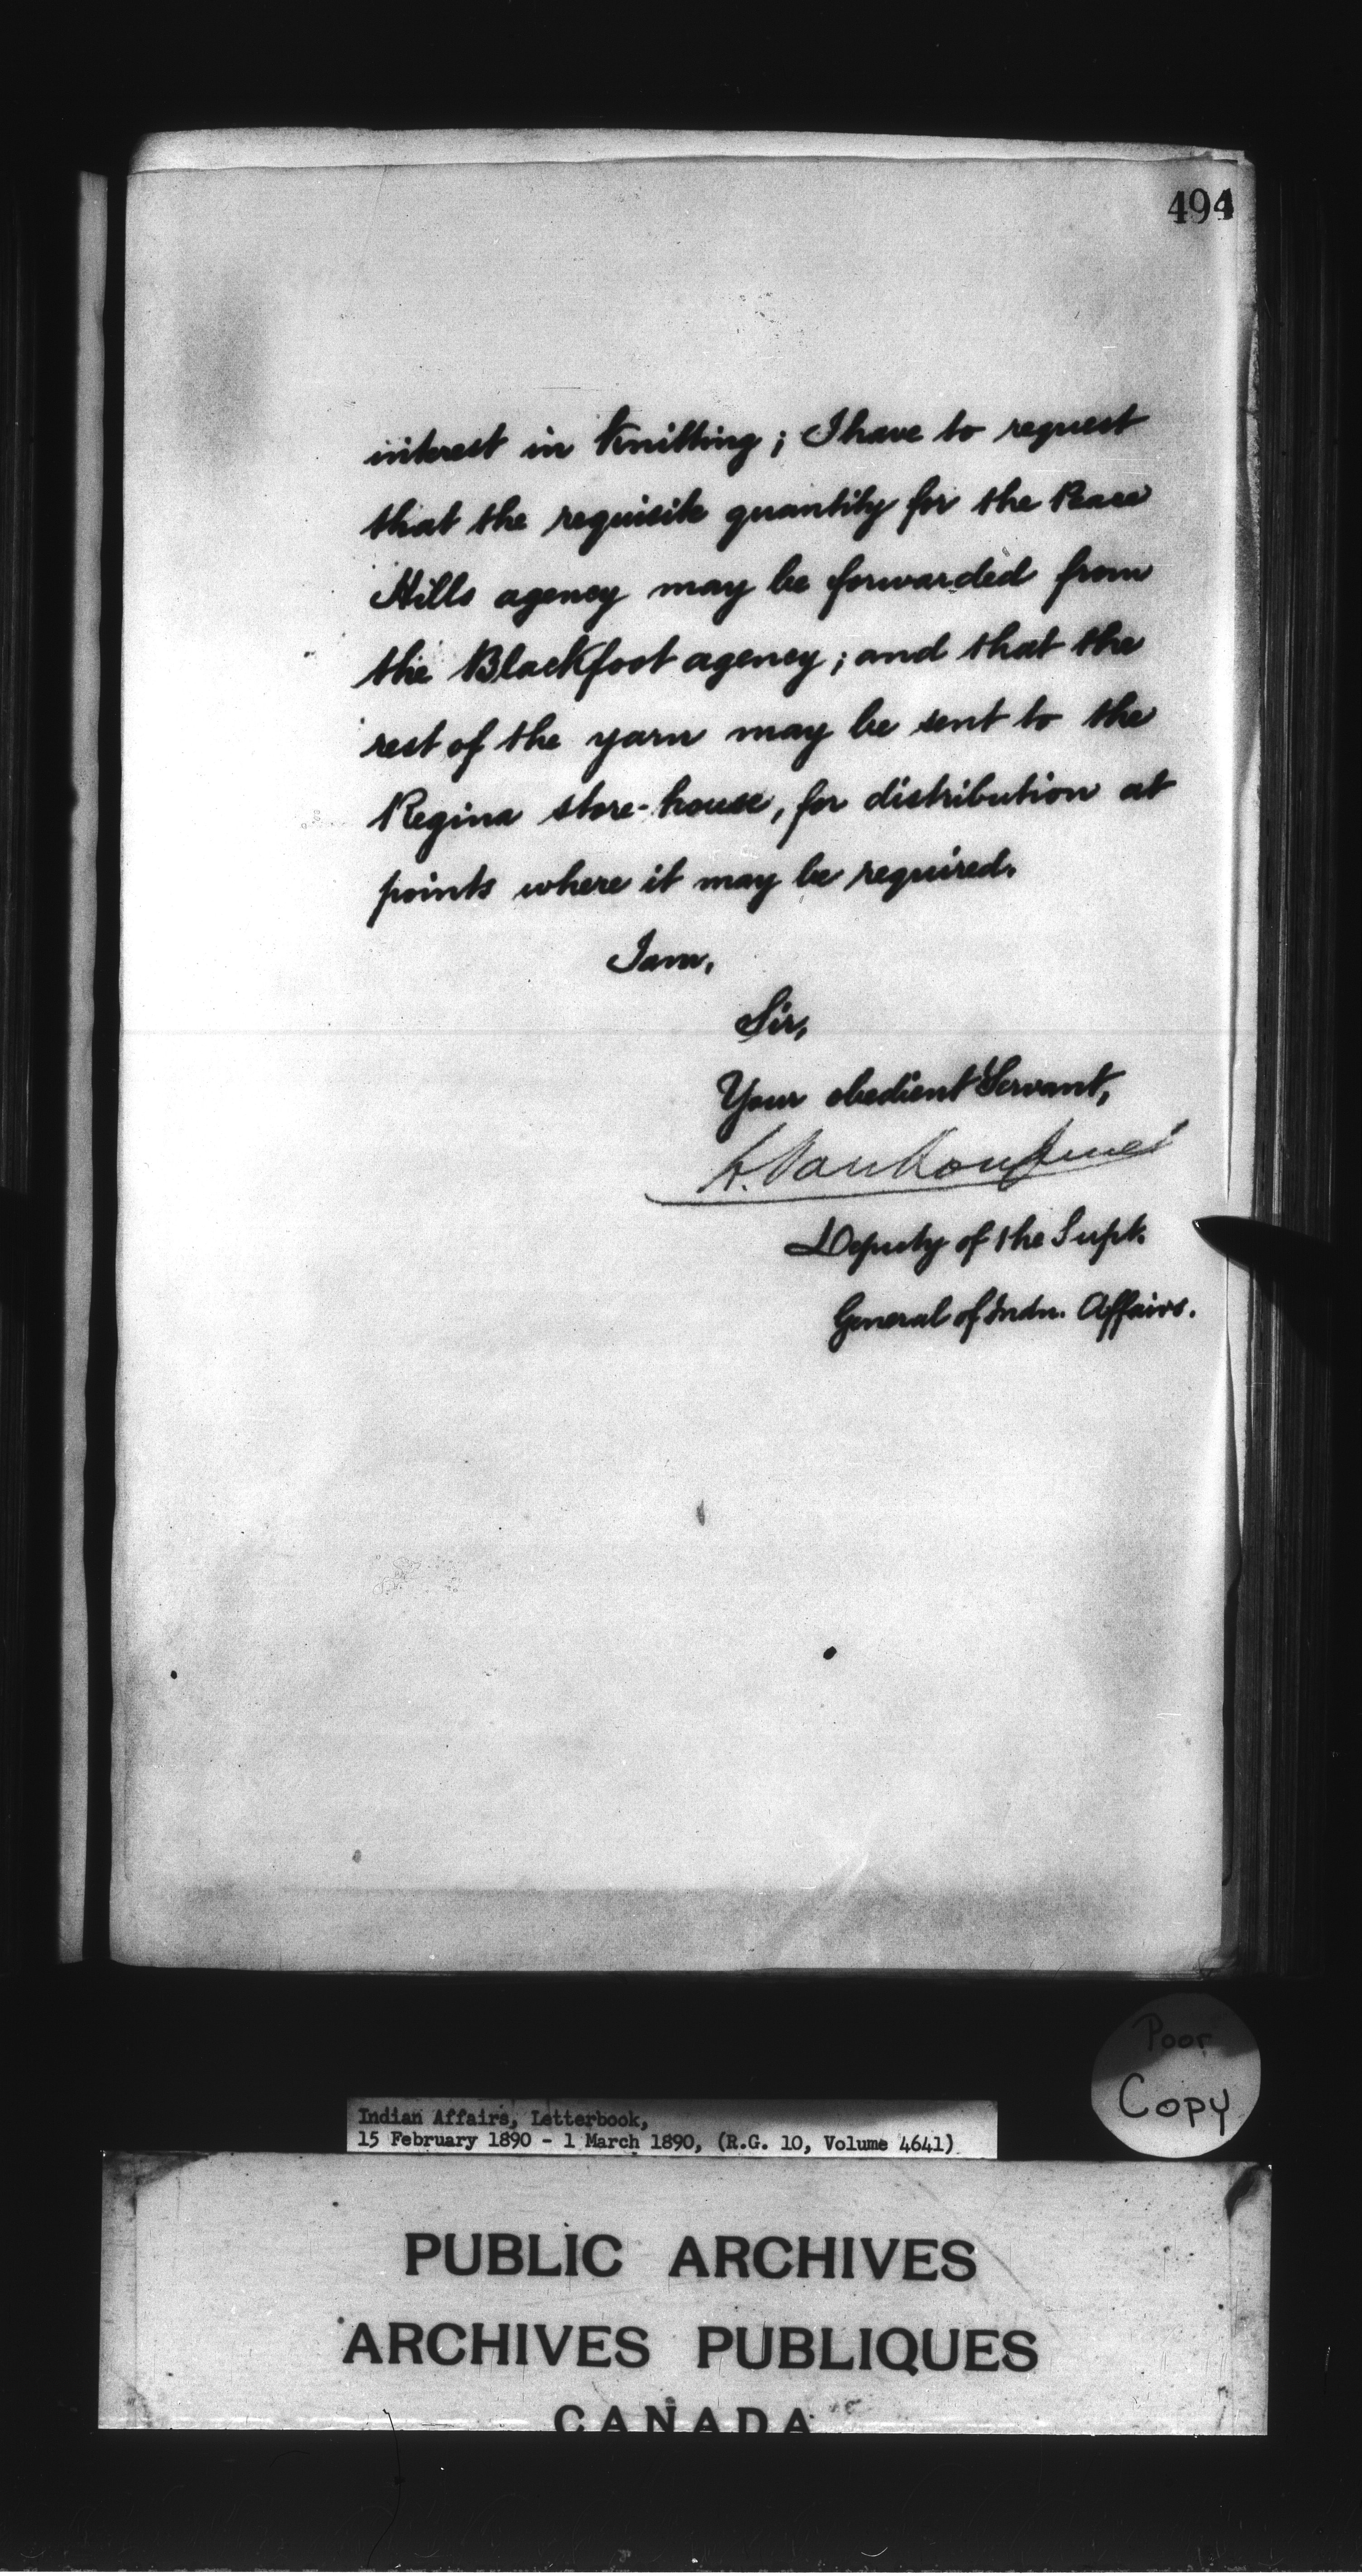 494
interest in Knitting; I have to request
that the requisite quantity for the Peace
Hills agency may be forwarded from
the Blackfoot agency; and that the
rest of the yarn may be sent to the
Regina store-house, for distribution at
points where it may be required.
I am,
Sir,
Your obedient Servant,
L. Vankoughnet
Deputy of the Supt.
General of Indn. Affairs.
Poor
Copy
Indian Affairs, Letterbook,
15 February 1890 - 1 March 1890, (R.G. 10, Volume 4641)
PUBLIC ARCHIVES
ARCHIVES PUBLIQUES
CANADA